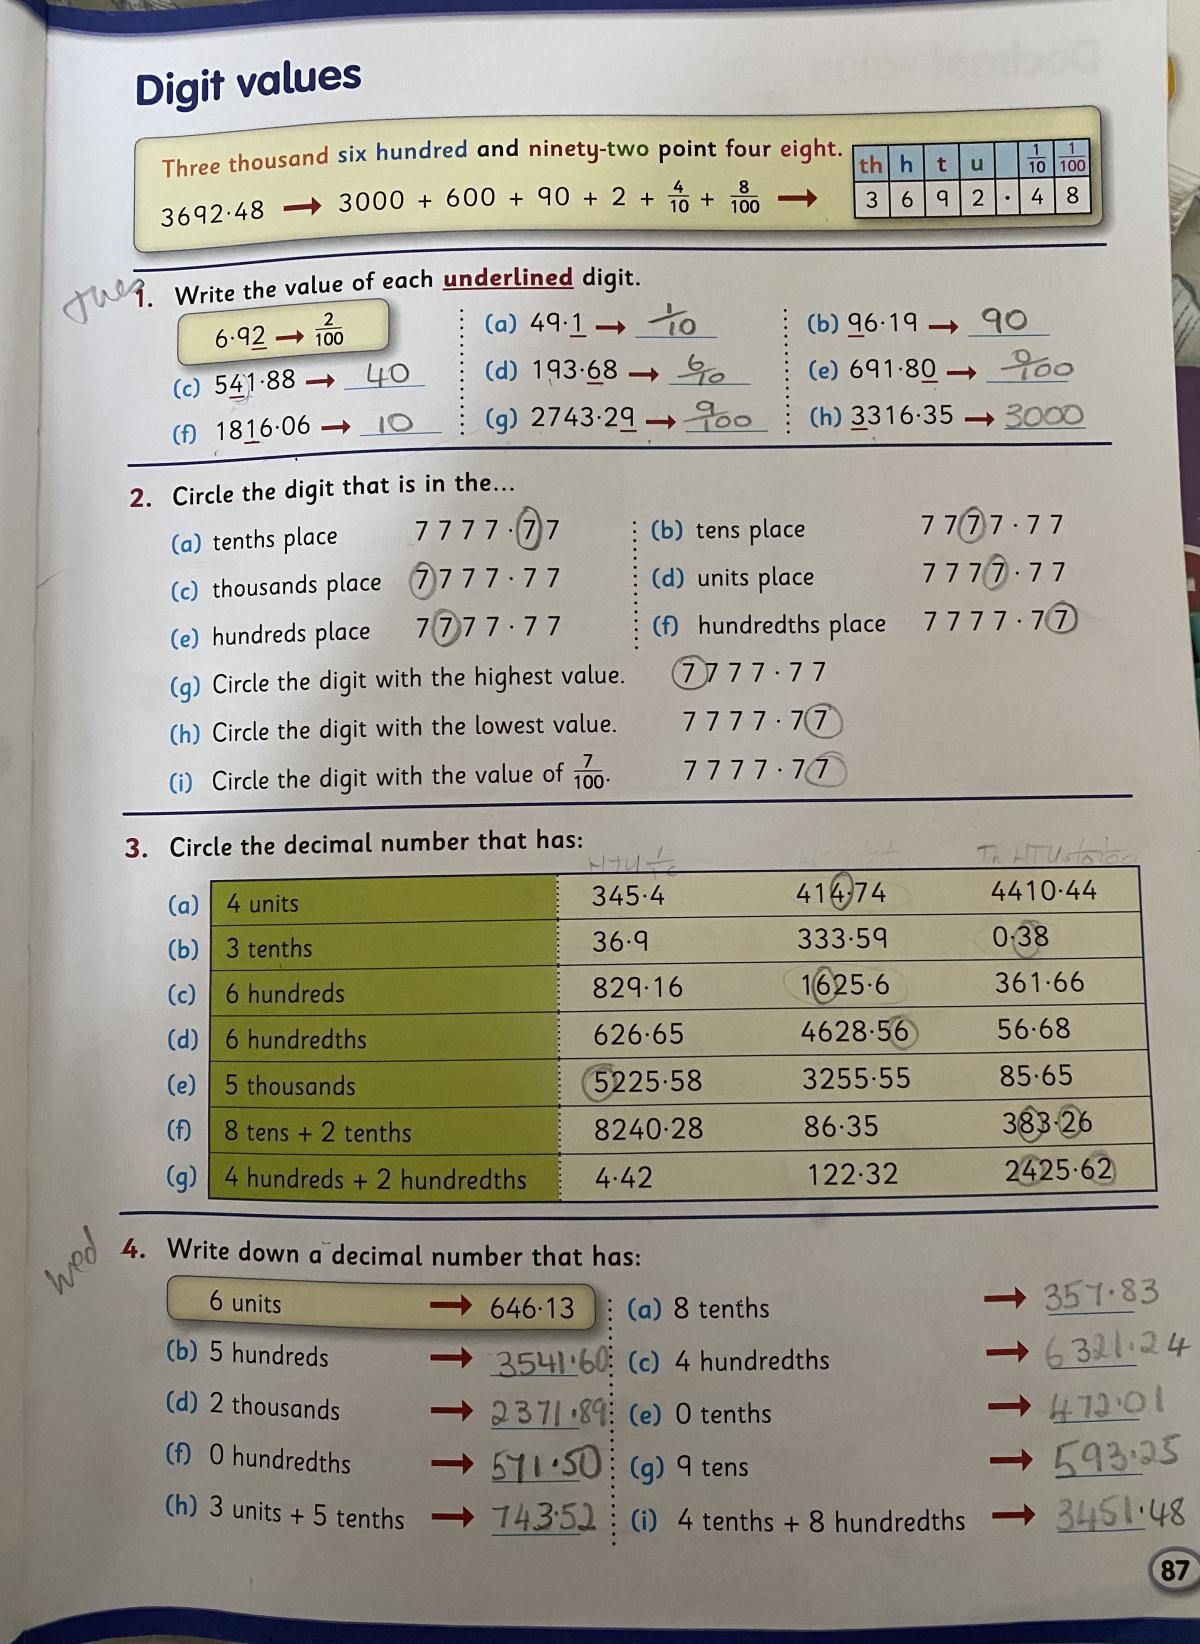 Digit values
Three thousand six hundred and ninety-two point four eight.
3692·48 → 3000 + 600 + 90 + 2 + 4/10 + 8/100 →
th h t u 1/10 1/100
3 6 9 2 · 4 8
Tues
1. Write the value of each underlined digit.
6·92 → 2/100 (a) 49·1 → 1/10 (b) 96·19 → 90
(c) 541·88 → 40 (d) 193·68 → 6/10 (e) 691·80 → 0/100
(f) 1816·06 → 10 (g) 2743·29 → 9/100 (h) 3316·35 → 3000
2. Circle the digit that is in the...
(a) tenths place 7 7 7 7 · 7 7 (b) tens place 7 7 7 7 · 7 7
(c) thousands place 7 7 7 7 · 7 7 (d) units place 7 7 7 7 · 7 7
(e) hundreds place 7 7 7 7 · 7 7 (f) hundredths place 7 7 7 7 · 7 7
(g) Circle the digit with the highest value. 7 7 7 7 · 7 7
(h) Circle the digit with the lowest value. 7 7 7 7 · 7 7
(i) Circle the digit with the value of 7/100. 7 7 7 7 · 7 7
3. Circle the decimal number that has:
(a) 4 units 345·4 414·74 4410·44
(b) 3 tenths 36·9 333·59 0·38
(c) 6 hundreds 829·16 1625·6 361·66
(d) 6 hundredths 626·65 4628·56 56·68
(e) 5 thousands 5225·58 3255·55 85·65
(f) 8 tens + 2 tenths 8240·28 86·35 383·26
(g) 4 hundreds + 2 hundredths 4·42 122·32 2425·62
wed
4. Write down a decimal number that has:
6 units → 646·13 (a) 8 tenths → 357·83
(b) 5 hundreds → 3541·60 (c) 4 hundredths → 6321·24
(d) 2 thousands → 2371·89 (e) 0 tenths → 472·01
(f) 0 hundredths → 571·50 (g) 9 tens → 593·25
(h) 3 units + 5 tenths → 743·52 (i) 4 tenths + 8 hundredths → 3451·48
87